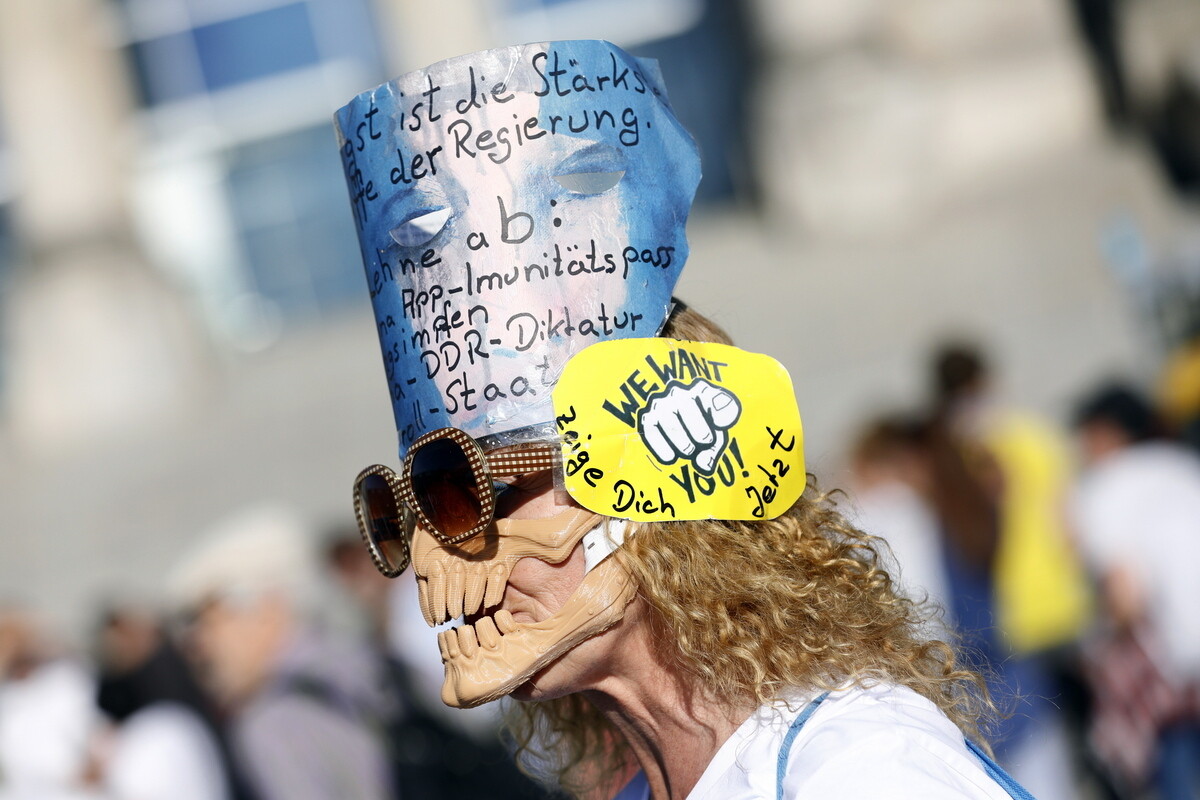 ist die Stärks
der Regierung.
ab:
App-Imunitätspass
impfen
DDR-Diktatur
-Staat
WE WANT
YOU!
zeige Dich Jetzt